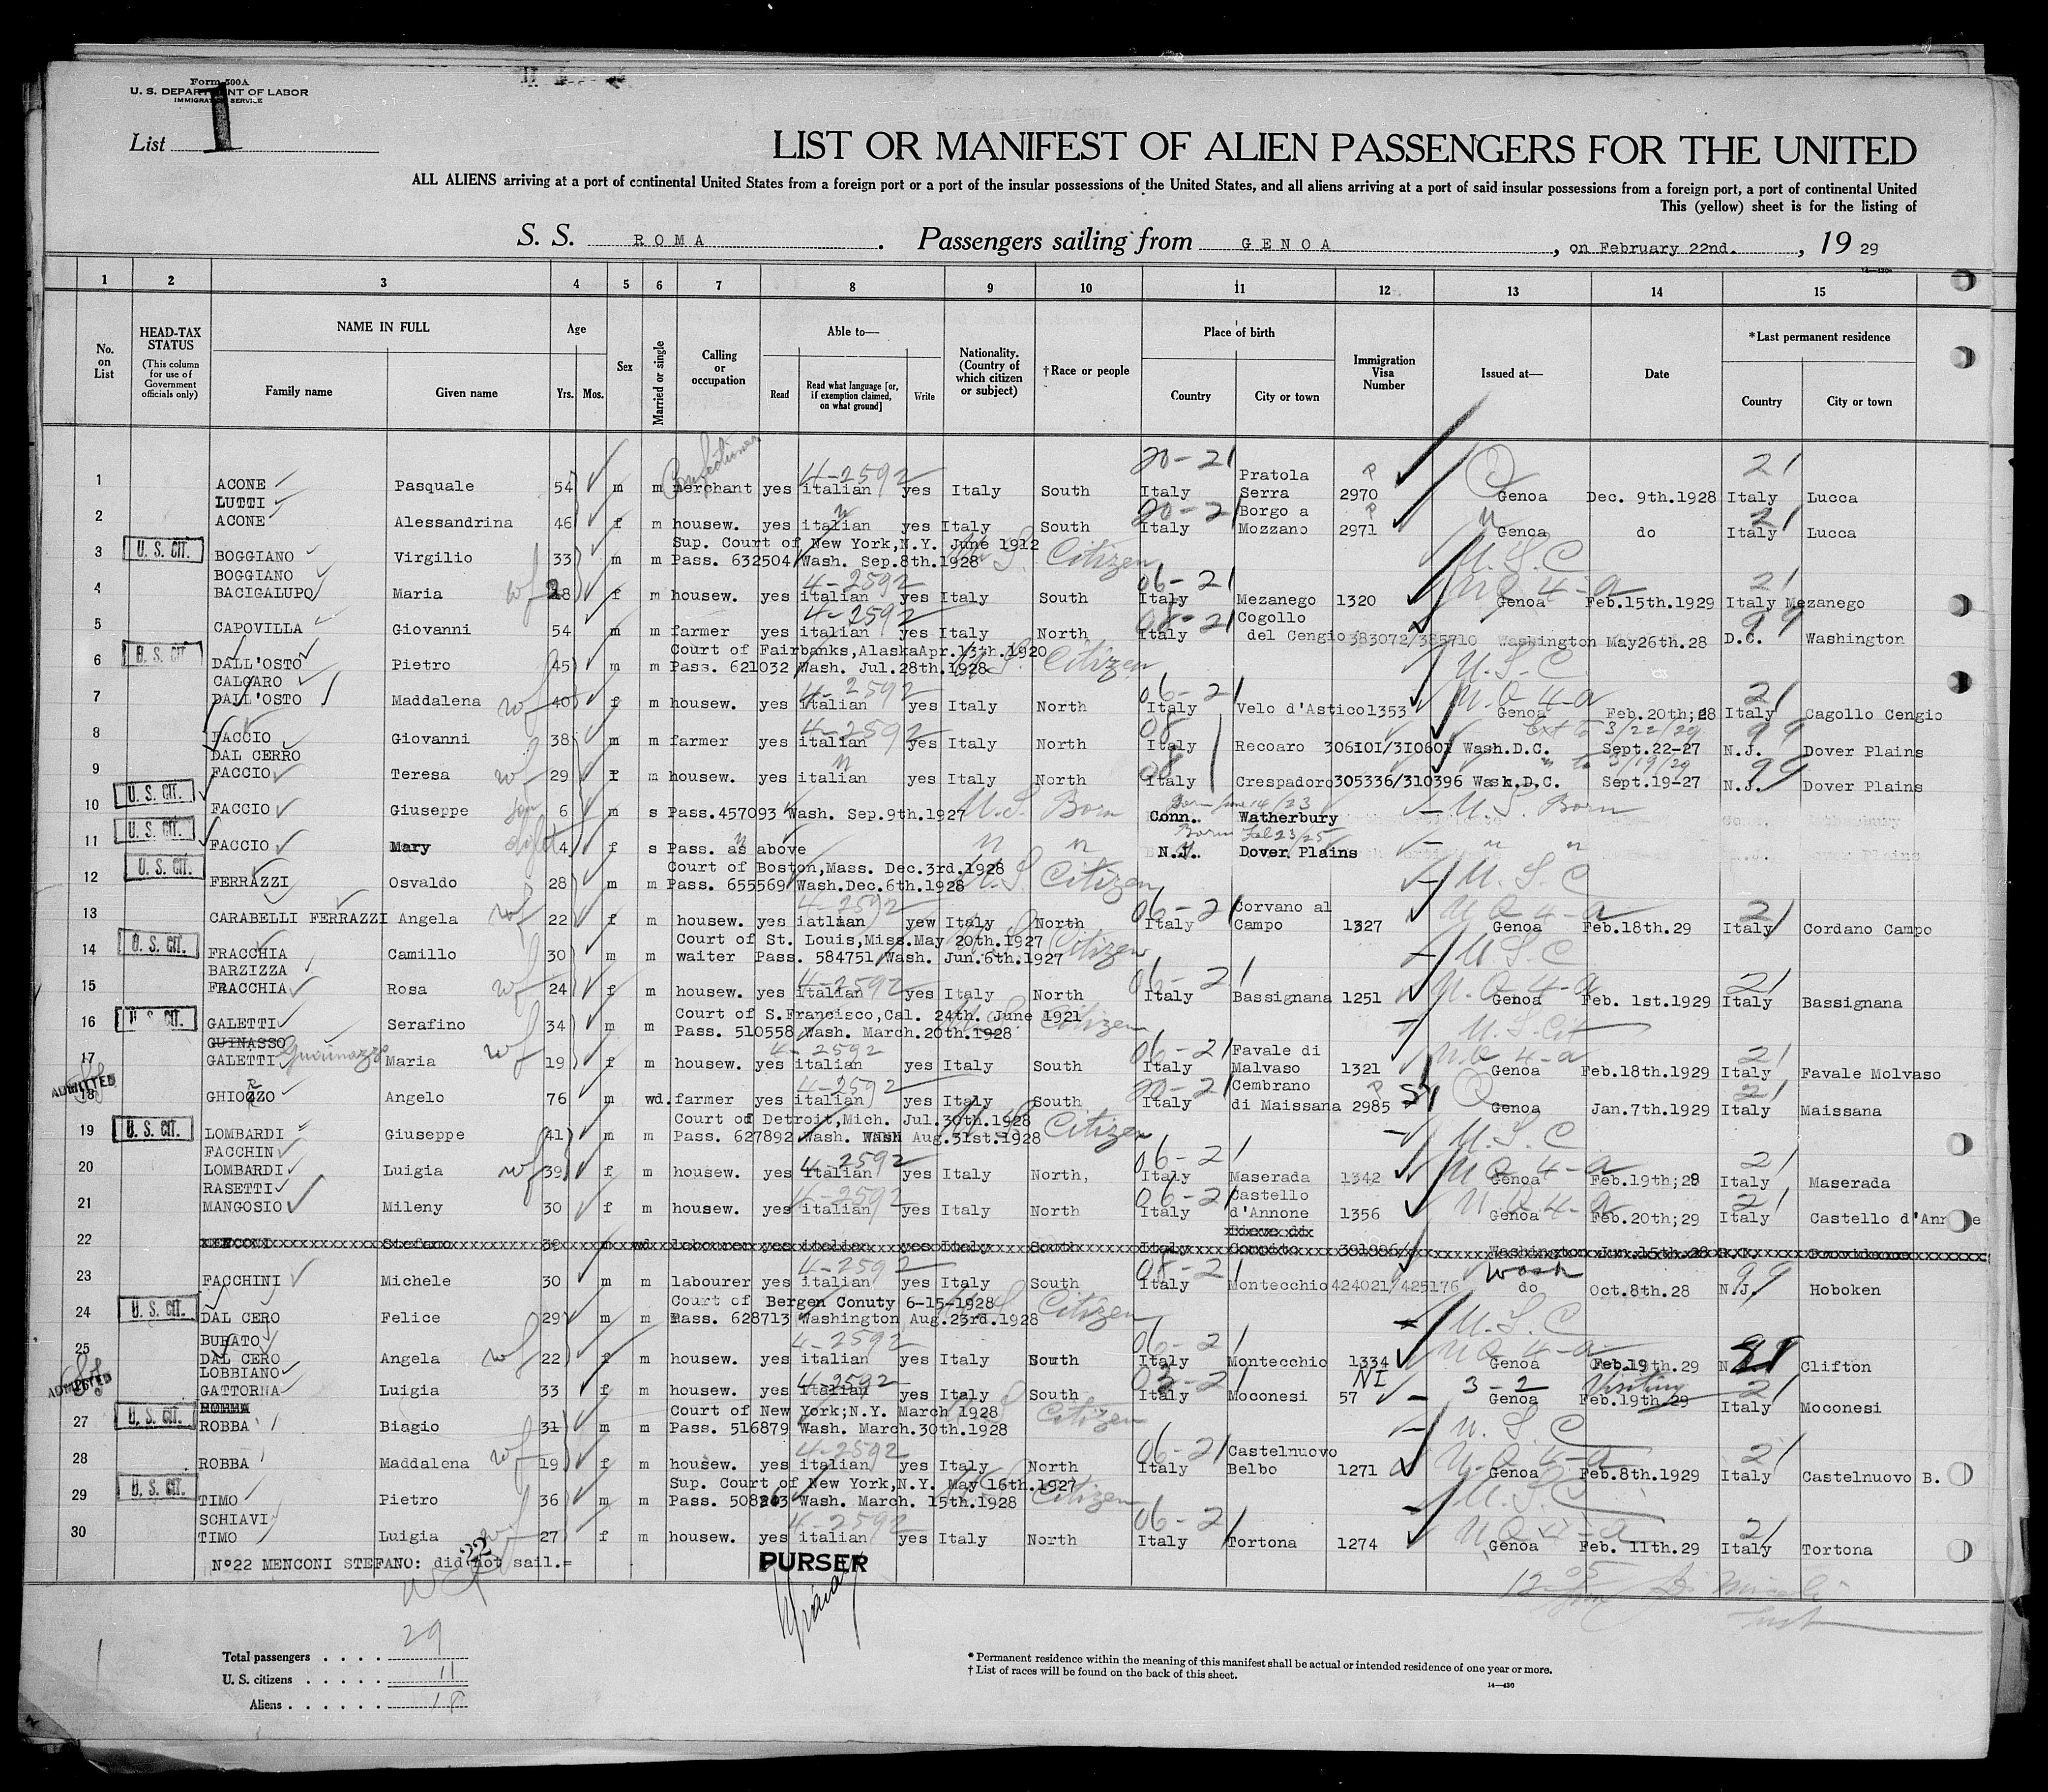 Form 500A
U. S. DEPARTMENT OF LABOR
IMMIGRATION SERVICE
List 1
LIST OR MANIFEST OF ALIEN PASSENGERS FOR THE UNITED
ALL ALIENS arriving at a port of continental United States from a foreign port or a port of the insular possessions of the United States, and all aliens arriving at a port of said insular possessions from a foreign port, a port of continental United
This (yellow) sheet is for the listing of
S. S. ROMA. Passengers sailing from GENOA, on February 22nd., 19 29
1 2 3 4 5 6 7 8 9 10 11 12 13 14 15
No. on List
HEAD-TAX STATUS (This column for use of Government officials only)
NAME IN FULL
Family name Given name
Age Yrs. Mos.
Sex
Married or single
Calling or occupation
Able to— Read Read what language [or, if exemption claimed, on what ground] Write
Nationality. (Country of which citizen or subject)
† Race or people
Place of birth Country City or town
Immigration Visa Number
Issued at—
Date
* Last permanent residence Country City or town
Confectioner 4-2592 20-21 Pratola P Q 21
1 ACONE Pasquale 54 m m merchant yes italian yes Italy South Italy Serra 2970 Genoa Dec. 9th.1928 Italy Lucca
LUTTI 20-21 Borgo a P 21
2 ACONE Alessandrina 46 f m housew. yes italian yes Italy South Italy Mozzano 2971 Genoa do Italy Lucca
Sup. Court of New York,N.Y. June 1912
3 U. S. CIT. BOGGIANO Virgilio 33 m m Pass. 632504 Wash. Sep.8th.1928 U.S. Citizen U.S.C
BOGGIANO 4-2592 06-21 N Q 4-a 21
4 BACIGALUPO Maria wf 28 f m housew. yes italian yes Italy South Italy Mezanego 1320 Genoa Feb.15th.1929 Italy Mezanego
4-2592 08-21 Cogollo 99
5 CAPOVILLA Giovanni 54 m m farmer yes italian yes Italy North Italy del Cengio 383072/385710 Washington May26th.28 D.C. Washington
Court of Fairbanks,AlaskaApr.13th.1920
6 U. S. CIT DALL'OSTO Pietro 45 m m Pass. 621032 Wash. Jul.28th.1928 U.S. Citizen U.S.C
CALGARO 4-2592 06-21 N.Q 4-a 21
7 DALL'OSTO Maddalena wf 40 f m housew. yes italian yes Italy North Italy Velo d'Astico1353 Genoa Feb.20th;28 Italy Cagollo Cengio
4-2592 08 Ext to 3/22/29 99
8 FACCIO Giovanni 38 m m farmer yes italian yes Italy North Italy Recoaro 306101/310601 Wash.D.C. Sept.22-27 N.J. Dover Plains
DAL CERRO 08 " to 3/19/29 99
9 FACCIO Teresa wf 29 f m housew. yes italian yes Italy North Italy Crespadoro305336/310396 Wask.D.C. Sept.19-27 N.J. Dover Plains
Born June 14/23
10 U. S. CIT. FACCIO Giuseppe son 6 m s Pass.457093 Wash. Sep.9th.1927 U.S. Born Conn. Watherbury U.S. Born
Born Feb 23/25
11 U. S. CIT. FACCIO Mary 4 f s Pass. as above " " N.J. Dover Plains " "
Court of Boston,Mass. Dec.3rd.1928
12 U. S. CIT. FERRAZZI Osvaldo 28 m m Pass. 655569 Wash.Dec.6th.1928 U.S Citizen U.S.C
4-2592 06-21 Corvano al N Q 4-a 21
13 CARABELLI FERRAZZI Angela wf 22 f m housew. yes iatlian yew Italy North Italy Campo 1327 Genoa Feb.18th.29 Italy Cordano Campo
Court of St. Louis,Miss.May 20th.1927
14 U. S. CIT. FRACCHIA Camillo 30 m m waiter Pass. 584751 Wash. Jun.6th.1927 Citizen U.S.C
BARZIZZA 4-2592 06-21 N.Q 4-a 21
15 FRACCHIA Rosa wf 24 f m housew. yes italian yes Italy North Italy Bassignana 1251 Genoa Feb. 1st.1929 Italy Bassignana
Court of S.Francisco,Cal. 24th. June 1921
16 U. S. CIT. GALETTI Serafino 34 m m Pass. 510558 Wash. March.20th.1928 Citizen U.S.Cit
GUINASSO 4-2592 06-21 Favale di N Q 4-a 21
17 GALETTI Maria wf 19 f m housew. yes italian yes Italy South Italy Malvaso 1321 Genoa Feb.18th.1929 Italy Favale Molvaso
ADMITTED 4-2592 20-21 Cembrano P Q 21
18 GHIOZZO Angelo 76 m wd. farmer yes italian yes Italy South Italy di Maissana 2985 Genoa Jan.7th.1929 Italy Maissana
Court of Detroit,Mich. Jul.30th.1928
19 U. S. CIT. LOMBARDI Giuseppe 41 m m Pass. 627892 Wash. Aug.31st.1928 U.S Citizen U.S.C
FACCHIN 4-2592 06-21 N Q 4-a 21
20 LOMBARDI Luigia wf 39 f m housew. yes italian yes Italy North, Italy Maserada 1342 Genoa Feb.19th;28 Italy Maserada
RASETTI 4-2592 06-21 Castello N Q 4-a 21
21 MANGOSIO Mileny 30 f m housew. yes italian yes Italy North Italy d'Annone 1356 Genoa Feb.20th;29 Italy Castello d'Annone
22 MENCONI Stefano 39 m wd labourer yes italian yes Italy South Italy Washington Jun.15th.28 Providence
4-2592 08-21 Wash 99
23 FACCHINI Michele 30 m m labourer yes italian yes Italy South Italy Montecchio 424021/425176 do Oct.8th.28 N.J. Hoboken
Court of Bergen Conuty 6-15-1928
24 U. S. CIT. DAL CERO Felice 29 m m Pass. 628713 Washington Aug.23rd.1928 U.S Citizen U.S.C
BURATO 4-2592 06-21 N Q 4-a
25 DAL CERO Angela wf 22 f m housew. yes italian yes Italy South Italy Montecchio 1334 Genoa Feb.19th.29 Clifton
LOBBIANO 4-2592 03-21 NI 3-2 Visiting 21
ADMITTED GATTORNA Luigia 33 f m housew. yes italian yes Italy South Italy Moconesi 57 Genoa Feb.19th.29 Italy Moconesi
Court of New York;N.Y. March 1928
27 U. S. CIT. ROBBA Biagio 31 m m Pass. 516879 Wash. March.30th.1928 Citizen U.S.C
4-2592 06-21 Castelnuovo N.Q 4-a 21
28 ROBBA Maddalena wf 19 f m housew. yes italian yes Italy North Italy Belbo 1271 Genoa Feb.8th.1929 Italy Castelnuovo B.
Sup. Court of New York,N.Y. May 16th.1927
29 U. S. CIT. TIMO Pietro 36 m m Pass. Wash. March. 15th.1928 Citizen U.S.C
SCHIAVI 4-2592 06-21 N Q 4-a 21
30 TIMO Luigia wf 27 f m housew. yes italian yes Italy North Italy Tortona 1274 Genoa Feb. 11th.29 Italy Tortona
Nº22 MENCONI STEFANO: did not sail.=
22
PURSER
29
Total passengers . . . .
U. S. citizens . . . . . 11
Aliens . . . . . . 18
* Permanent residence within the meaning of this manifest shall be actual or intended residence of one year or more.
† List of races will be found on the back of this sheet.
14—430